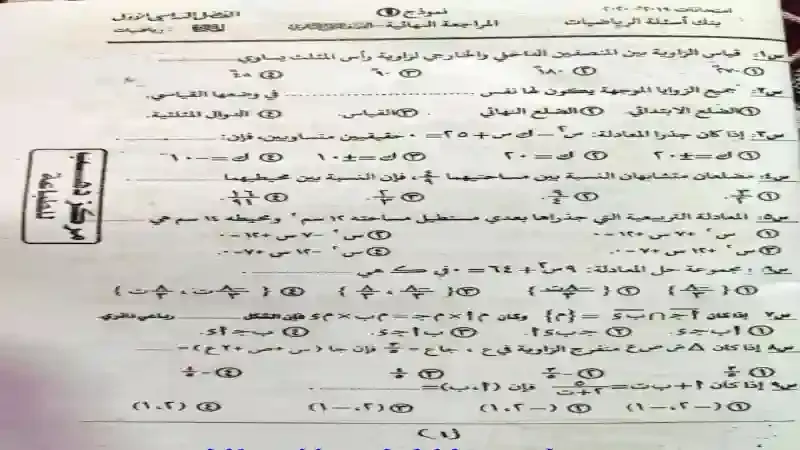 امتحانات ٢٠١٩-٢٠٢٠ نموذج الفصل الدراسي الأول
بنك أسئلة الرياضيات المراجعة النهائية رياضيات
س١: قياس الزاوية بين المنصفين الداخلي والخارجي لزاوية رأس المثلث يساوي
١ ٢٧٠° ٢ ١٨٠° ٣ ٩٠° ٤ ٤٥°
س٢: جميع الزوايا الموجهة يكون لها نفس ............ في وضعها القياسي.
١ الضلع الابتدائي ٢ الضلع النهائي ٣ القياس. ٤ الدوال المثلثية.
س٣: إذا كان جذرا المعادلة: س٢ – ك س + ٢٥ = ٠ حقيقيين متساويين، فإن:
١ ك = ± ٢٠ ٢ ك = ٢٠ ٣ ك = ± ١٠ ٤ ك = – ١٠
س٤: مضلعان متشابهان النسبة بين مساحتيهما ٤/٩، فإن النسبة بين محيطيهما
س٥: المعادلة التربيعية التي جذراها بعدي مستطيل مساحته ١٢ سم٢ ومحيطه ١٤ سم هي
١ س٢ + ٧ س + ١٢ = ٠ ٢ س٢ – ٧ س + ١٢ = ٠
٣ س٢ + ١٢ س + ٧ = ٠ ٤ س٢ – ١٢ س + ٧ = ٠
س٦: مجموعة حل المعادلة: ٩ س٢ + ٦٤ = ٠ في ك هي
س٧ إذا كان أجـ ∩ بء = {م} وكان م أ × م جـ = م ب × م ء فإن الشكل ............ رباعي دائري
١ أ ب جـ ء ٢ جـ ب ء أ ٣ ب أ جـ ء ٤ ب جـ أ ء
س٨ إذا كان △ س ص ع منفرج الزاوية في ع ، جا ع = فإن جا ( س + ص + ٢ ع ) =
س٩ إذا كان أ + ب ت = ٥/(٢ + ت) فإن (أ ، ب) =
١ (– ٢ ، – ١) ٢ (– ٢ ، ١) ٣ (٢ ، – ١) ٤ (٢ ، ١)
(١)
مركز
للطباعة